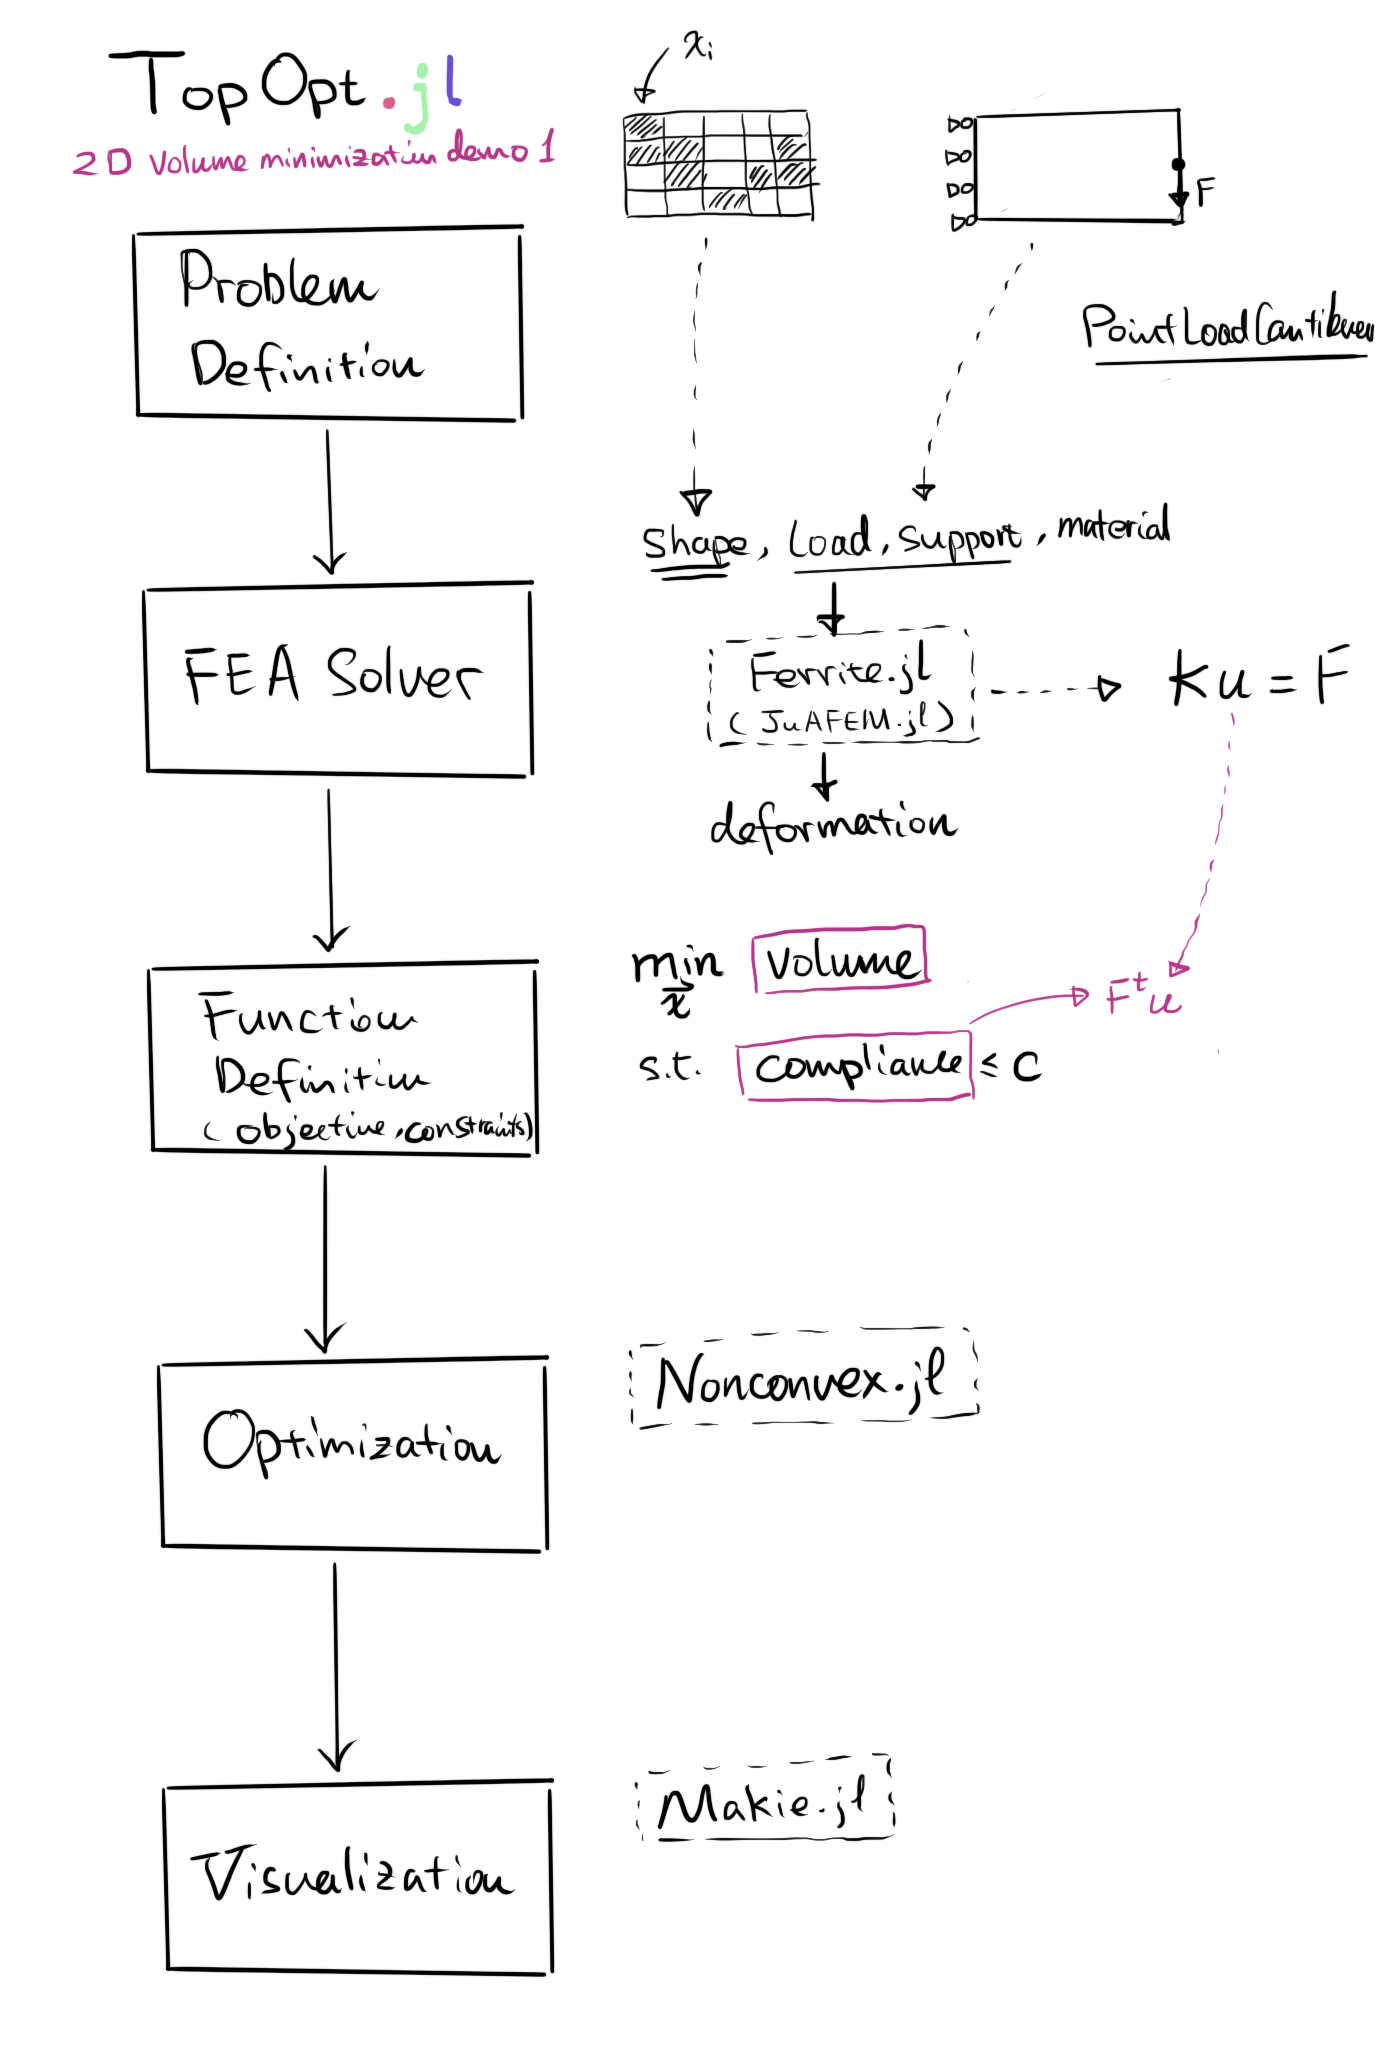 TopOpt.jl
2D Volume minimization demo 1
xi
F
Problem
Definition
PointLoadCantilever
shape, Load, support, material
FEA Solver
Ferrite.jl
(JuAFEM.jl)
Ku = F
deformation
Function
Definition
(objective, constraints)
min volume
x
s.t. compliance ≤ C
Fᵗu
Optimization
Nonconvex.jl
Visualization
Makie.jl